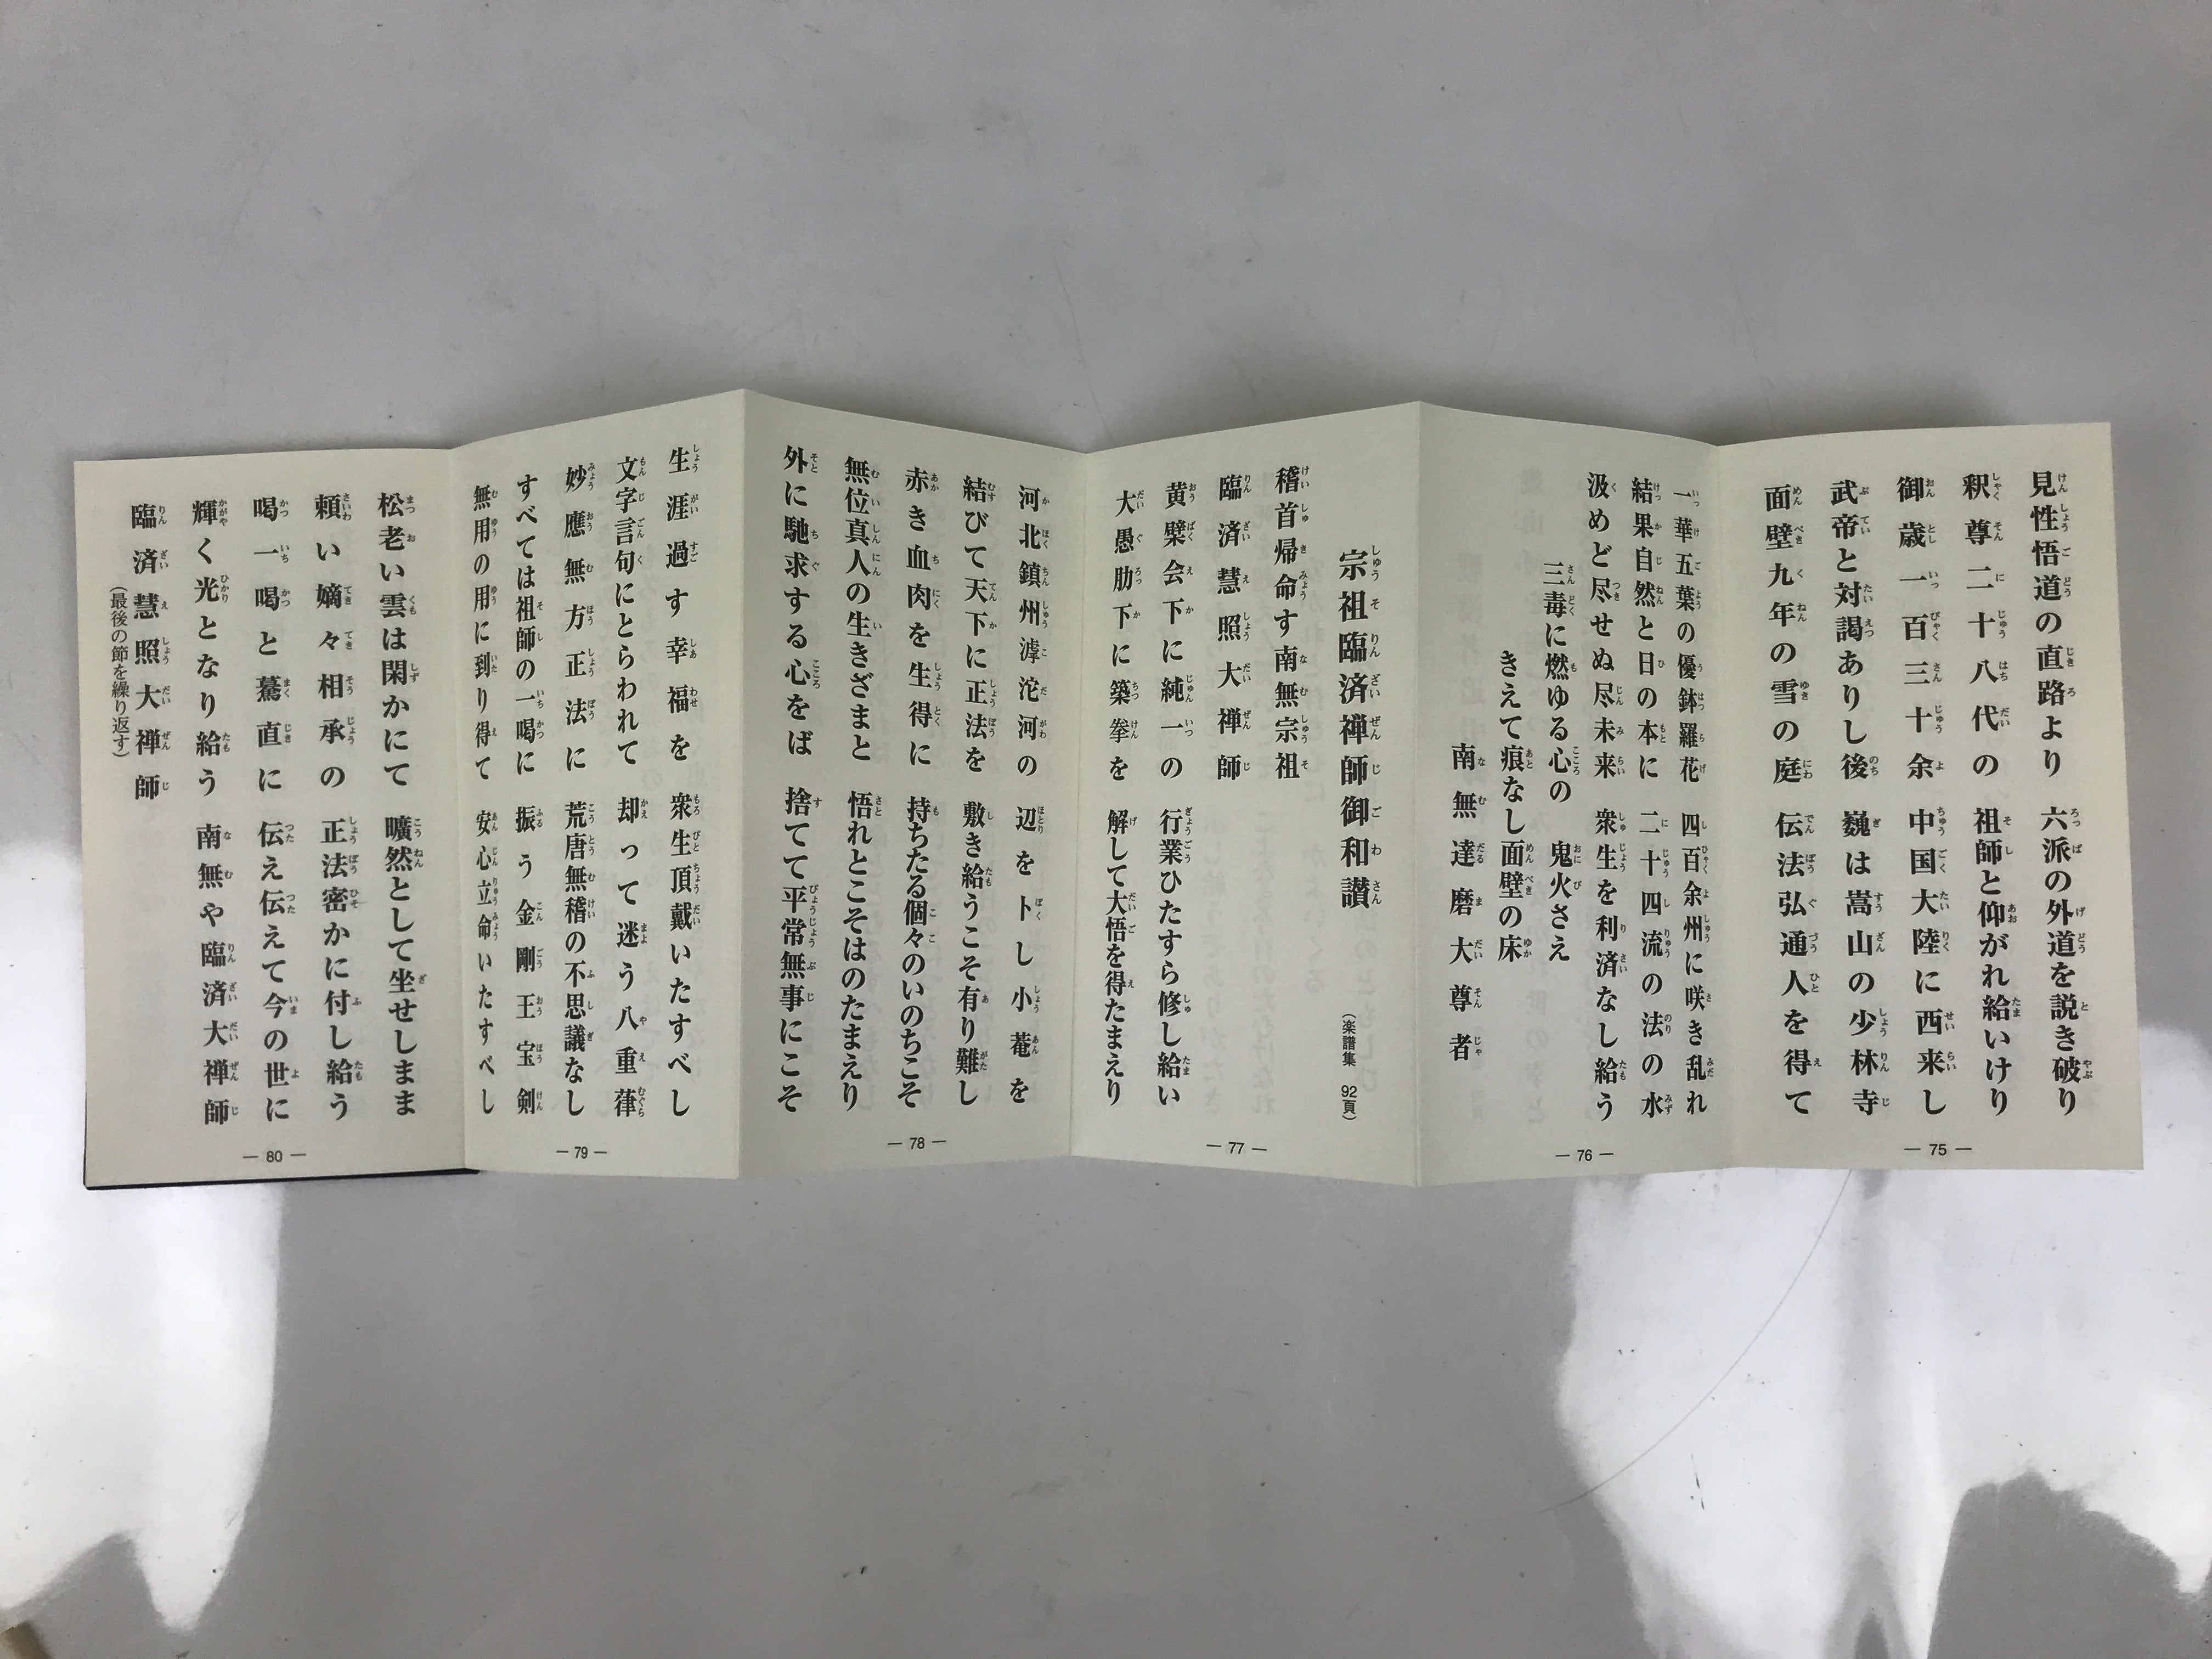 見性悟道の直路より　六派の外道を説き破り
釈尊二十八代の　祖師と仰がれ給いけり
御歳一百三十余　中国大陸に西来し
武帝と対謁ありし後　巍は嵩山の少林寺
面壁九年の雪の庭　伝法弘通人を得て
― 75 ―
一華五葉の優鉢羅花　四百余州に咲き乱れ
結果自然と日の本に　二十四流の法の水
汲めど尽せぬ尽未来　衆生を利済なし給う
三毒に燃ゆる心の　鬼火さえ
きえて痕なし面壁の床
南無達磨大尊者
― 76 ―
宗祖臨済禅師御和讃　（楽譜集　92頁）
稽首帰命す南無宗祖
臨済慧照大禅師
黄檗会下に純一の　行業ひたすら修し給い
大愚肋下に築拳を　解して大悟を得たまえり
― 77 ―
河北鎮州滹沱河の　辺を卜し小菴を
結びて天下に正法を　敷き給うこそ有り難し
赤き血肉を生得に　持ちたる個々のいのちこそ
無位真人の生きざまと　悟れとこそはのたまえり
外に馳求する心をば　捨てて平常無事にこそ
― 78 ―
生涯過す幸福を　衆生頂戴いたすべし
文字言句にとらわれて　却って迷う八重葎
妙應無方正法に　荒唐無稽の不思議なし
すべては祖師の一喝に　振う金剛王宝剣
無用の用に到り得て　安心立命いたすべし
― 79 ―
松老い雲は閑かにて　曠然として坐せしまま
頼い嫡々相承の　正法密かに付し給う
喝一喝と驀直に　伝え伝えて今の世に
輝く光となり給う　南無や臨済大禅師
臨済慧照大禅師
（最後の節を繰り返す）
― 80 ―